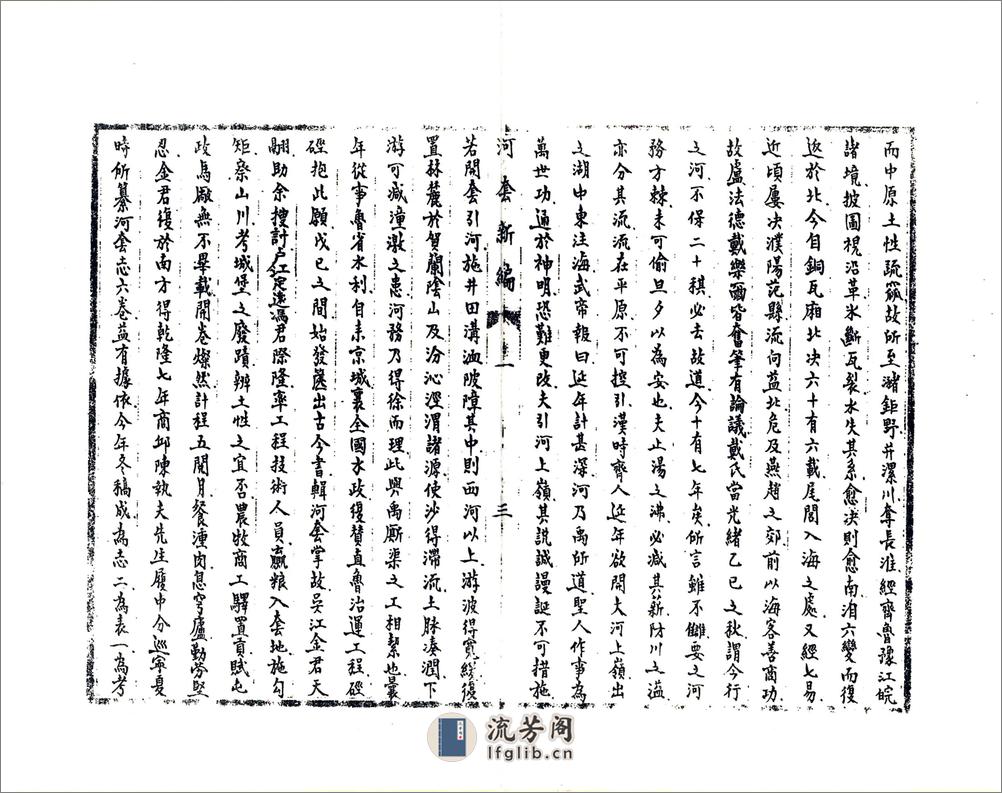 而中原土性疏𤓰故所至潴鉅野并漯川奪長淮經齊魯豫江皖
諸境披圖視沿革氷斷瓦裂水失其系愈決則愈南洎六變而復
返於北今自銅瓦廂北決六十有六載尾閭入海之處又經七易
近頃屢決濮陽范縣流向益北危及燕趙之郊前以海客善商功
故盧法德戴樂爾皆奮筆有論議戴氏當光緒乙巳之秋謂今行
之河不保二十稘必去故道今十有七年矣所言雖不讎要之河
務方棘未可偷旦夕以為安也夫止湯之沸必減其薪防川之溢
亦分其流流在平原不可控引漢時齊人延年欲開大河上嶺出
之湖中東注海武帝報曰延年計甚深河乃禹所道聖人作事為
萬世功通於神明恐難更改夫引河上嶺其說誠謾誕不可措施
河套新編 三
若開套引河施井田溝洫陂障其中則西河以上游波得寬緩復
置林麓於賀蘭陰山及汾沁涇渭諸源使沙得滯流土脉湊潤下
游可減潼潡之患河務乃得徐而理此與禹厮渠之工相絜也曩
年從事魯省水利自耒京城襄全國水政復贊直魯治運工程硜
硜抱此願戊己之間始發篋出古今書輯河套掌故吳江金君天
翮助余搜討卢江定遠馮君際隆率工程技術人員羸粮入套地施勾
矩察山川考城堡之廢蹟辨土性之宜否農牧商工驛置貢賦屯
政馬廠無不畢載開卷燦然計程五閱月餐湩肉息穹廬勤勞堅
忍金君復於南方得乾隆七年商邱陳執夫先生履中分巡寧夏
時所纂河套志六卷益有據依今年冬稿成為志二為表一為考
流芳阁
lfglib.cn